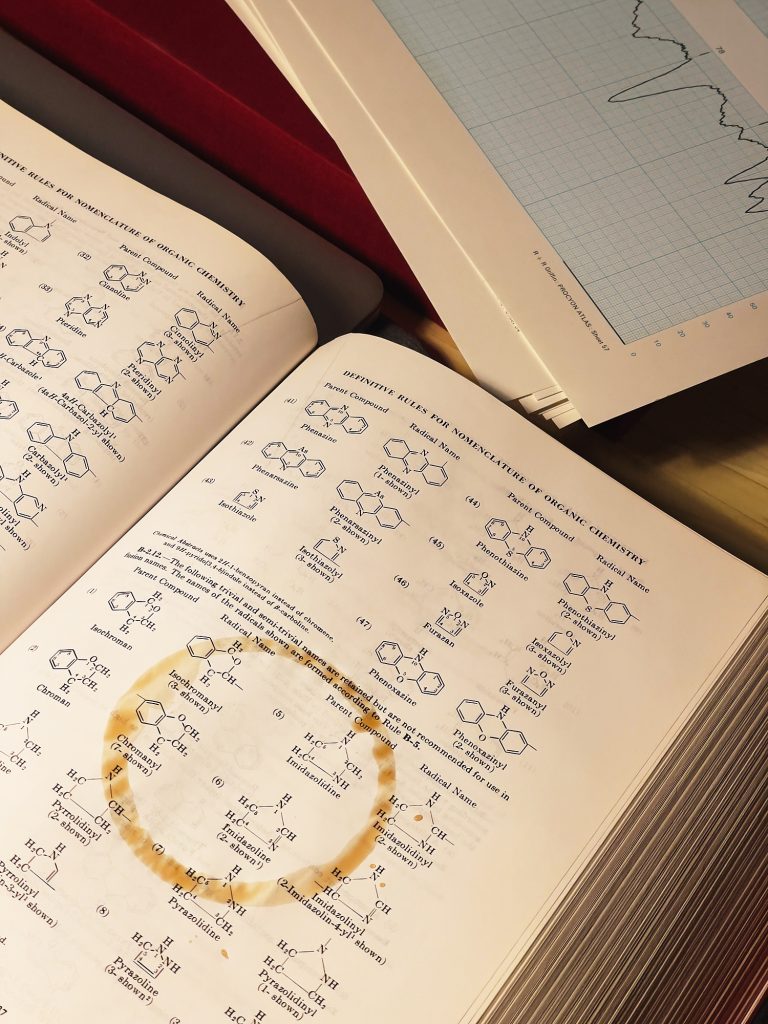 RULES FOR NOMENCLATURE OF ORGANIC CHEMISTRY
Radical Name
Indolyl
(32)
Parent Compound
Cinnoline
Radical Name
Cinnolinyl
(3- shown)
(33)
Pteridine
Pteridinyl
(2- shown)
4aH-Carbazolyl¹
(4aH-Carbazol-2-yl¹ shown)
Carbazolyl¹
(2- shown)
DEFINITIVE RULES FOR NOMENCLATURE OF ORGANIC CHEMISTRY
Parent Compound
Radical Name
(41)
Phenazine
Phenazinyl
(1- shown)
(42)
Phenarsazine
Phenarsazinyl
(2- shown)
(43)
Isothiazole
Isothiazolyl
(3- shown)
Parent Compound
Radical Name
(44)
Phenothiazine
Phenothiazinyl
(2- shown)
(45)
Isoxazole
Isoxazolyl
(3- shown)
(46)
Furazan
Furazanyl
(3- shown)
(47)
Phenoxazine
Phenoxazinyl
(2- shown)
Chemical Abstracts uses 2H-1-benzopyran instead of chromene,
instead of β-carboline.
B-2.12.—The following trivial and semi-trivial names are retained but are not recommended for use in
fusion names. The names of the radicals shown are formed according to Rule B-5.
Parent Compound
Radical Name
Parent Compound
Radical Name
(1)
Isochroman
Isochromanyl
(3- shown)
(2)
Chroman
Chromanyl
(7- shown)
Pyrrolidinyl
(2- shown)
(5)
Imidazolidine
Imidazolidinyl
(2- shown)
(6)
Imidazoline
(2- shown¹)
Imidazolinyl
(2-Imidazolin-4-yl¹ shown)
(7)
Pyrazolidine
Pyrazolidinyl
(1- shown)
(8)
Pyrazoline
(3- shown²)
78
R + R Griffin. PROCYON ATLAS : Sheet 57
0
10
20
30
40
50